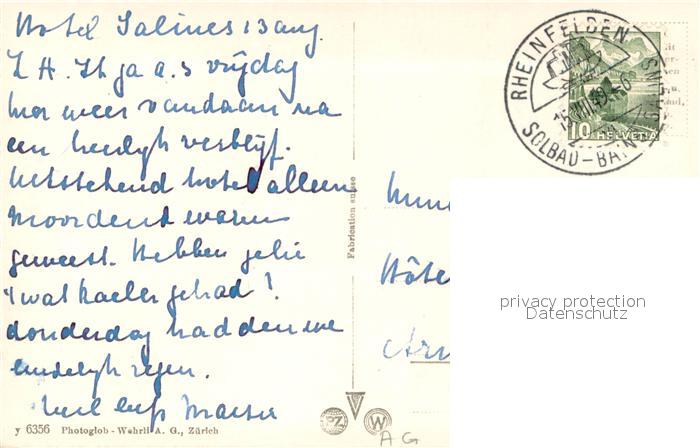 Hotel Salines 13 aug.
L.H. Ik ga a.s vrijdag
hier weer vandaan na
een heerlijk verblijf.
Uitstekend hotel alleen
moordend warm
geweest. Hebben jelie
't wat koeler gehad?
donderdag hadden we
eindelijk regen.
Veel liefs
y 6356 Photoglob - Wehrli A. G., Zürich
Fabrication suisse
RHEINFELDEN
SOLBAD-BAINS SALINS
10 HELVETIA
Hôte
PZ W
AG
privacy protection
Datenschutz